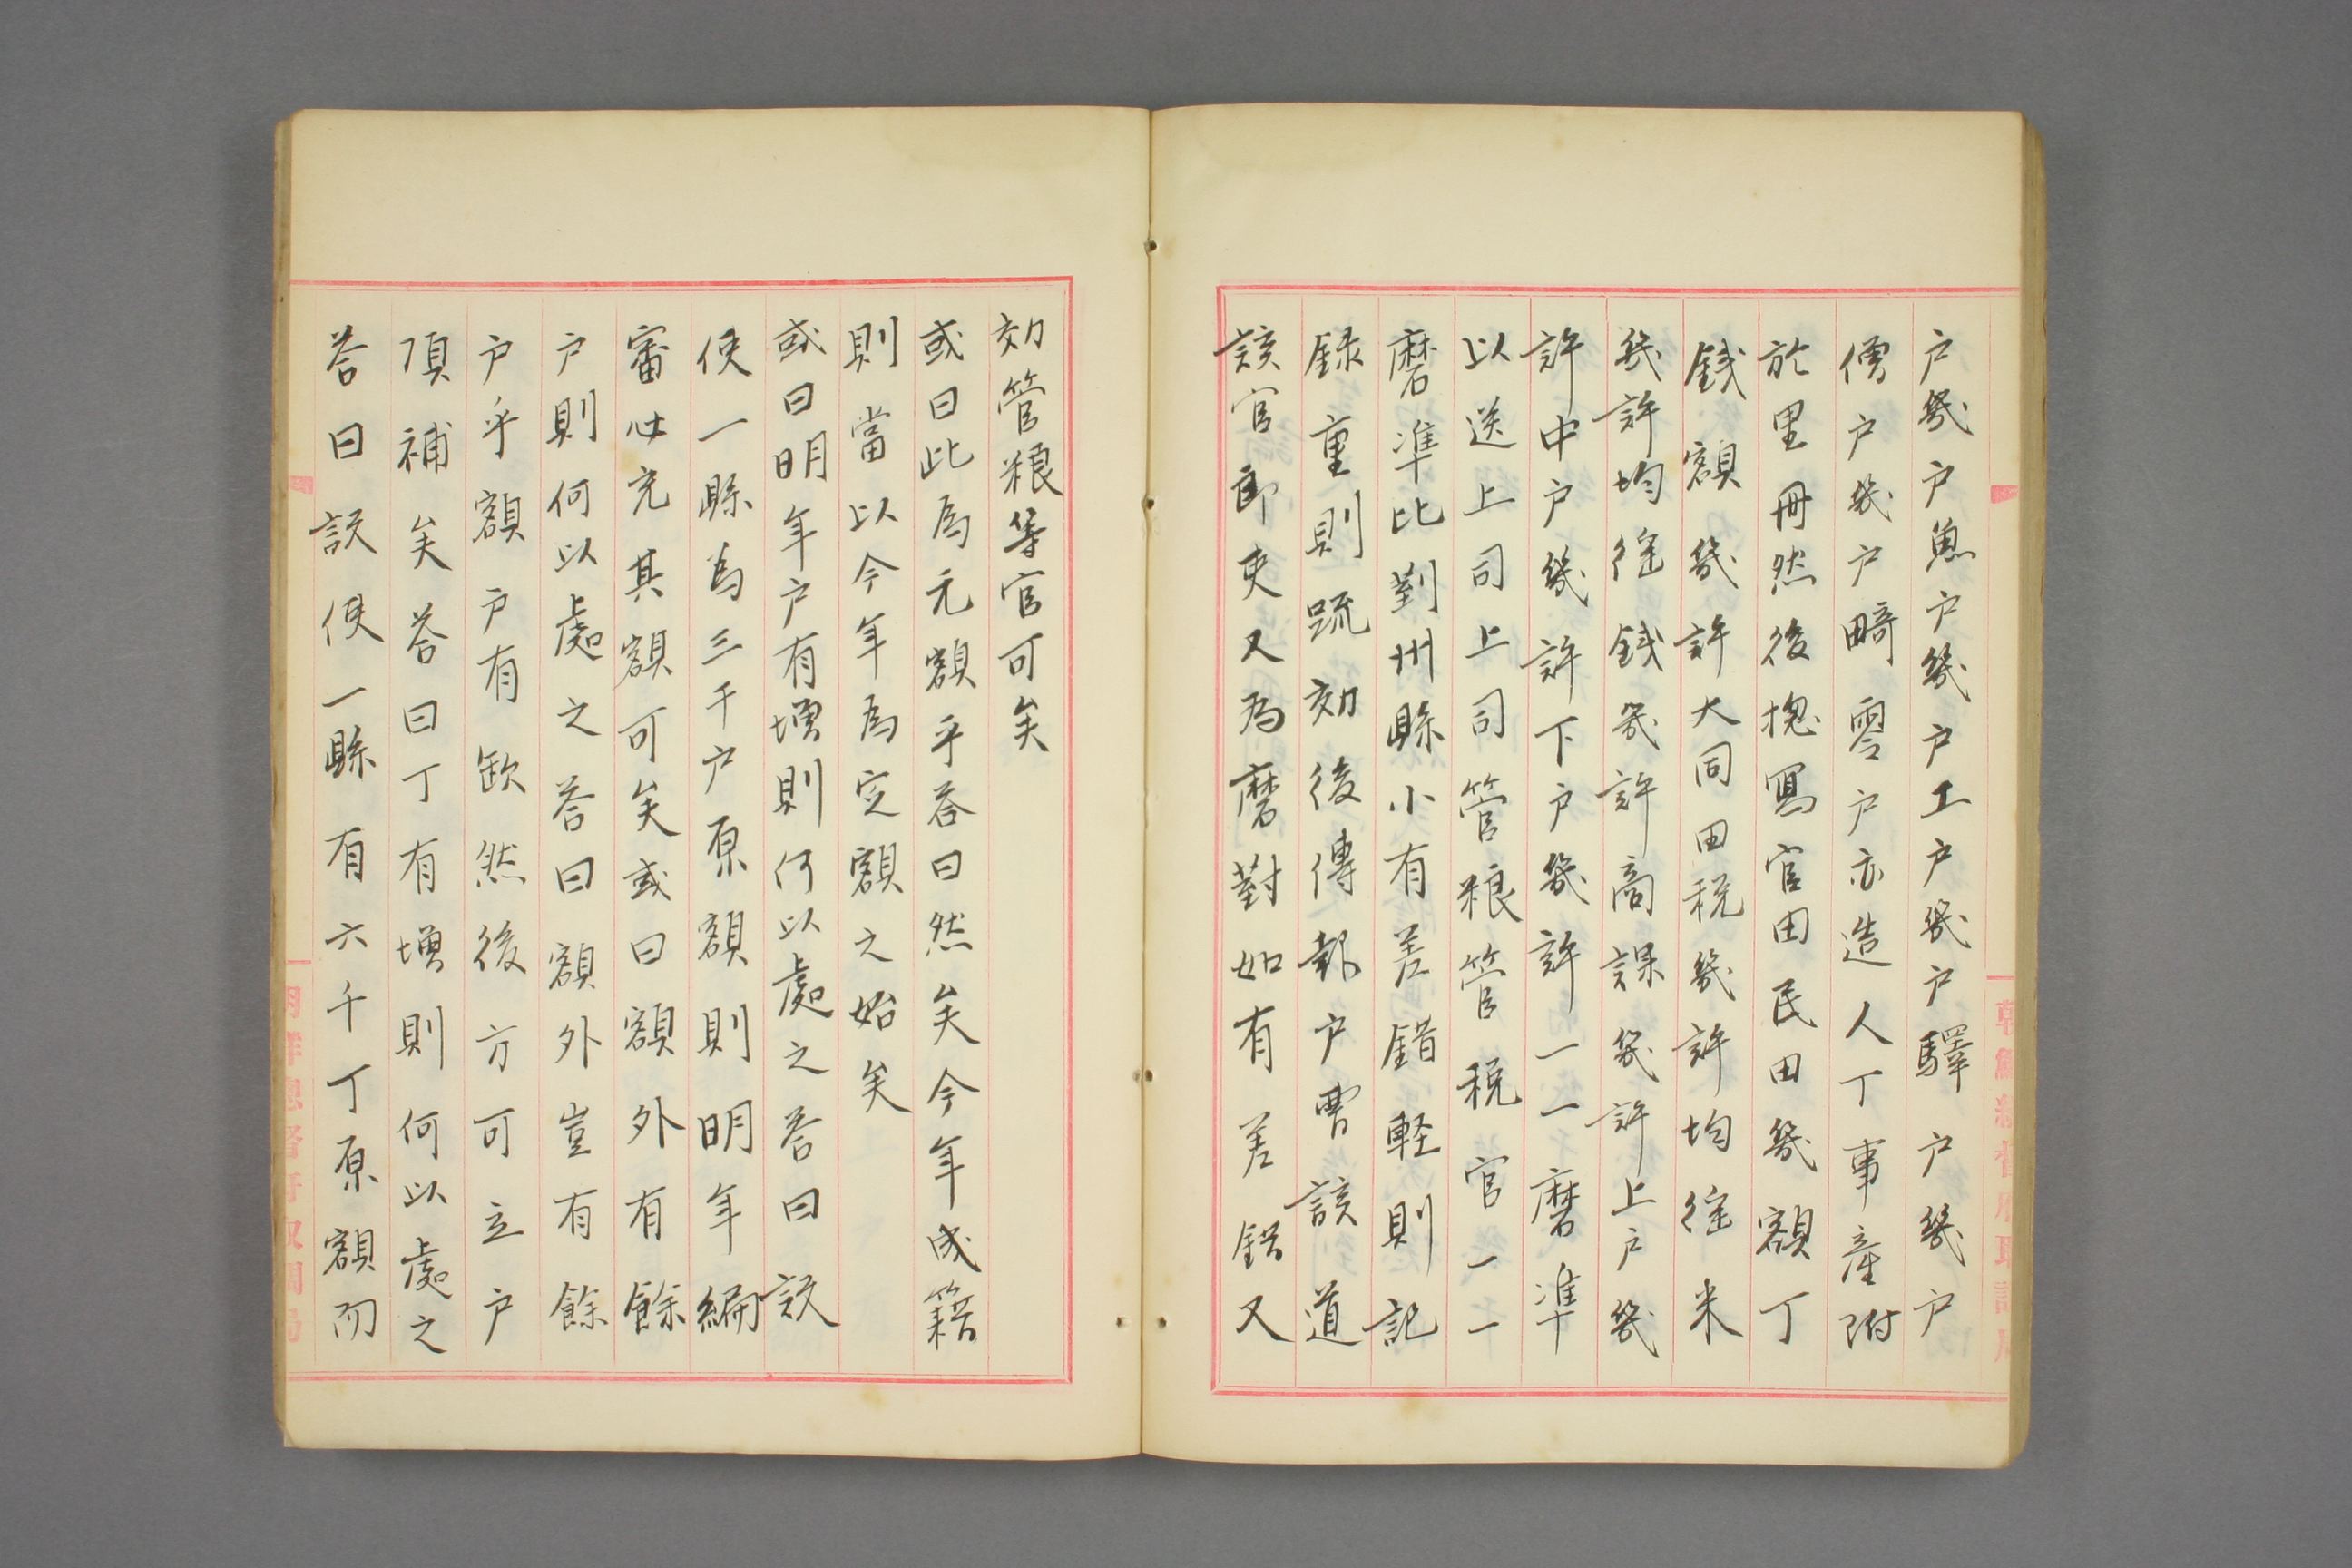 户幾户漁户幾户工户幾户驛户幾户
僧户幾户畸零户亦造人丁事産附
於里冊然後摠寫官田民田幾額丁
錢額幾許大同田税幾許均徭米
幾許均徭錢幾許商課幾許上户幾
許中户幾許下户幾許一一磨準
以送上司上司管粮管税官一一
磨準比對州縣小有差錯軽則記
録重則䟽劾後傳報户曹該道
該官郎吏又為磨對如有差錯又
劾管粮等官可矣
或曰此為元額乎答曰然矣今年成籍
則當以今年為定額之始矣
或曰明年户有增則何以處之答曰設
使一縣為三千户原額則明年編
審必充其額可矣或曰額外有餘
户則何以處之答曰額外豈有餘
户乎額户有缺然後方可立户
頂補矣答曰丁有增則何以處之
答曰設使一縣有六千丁原額而
朝鮮總督府取調局